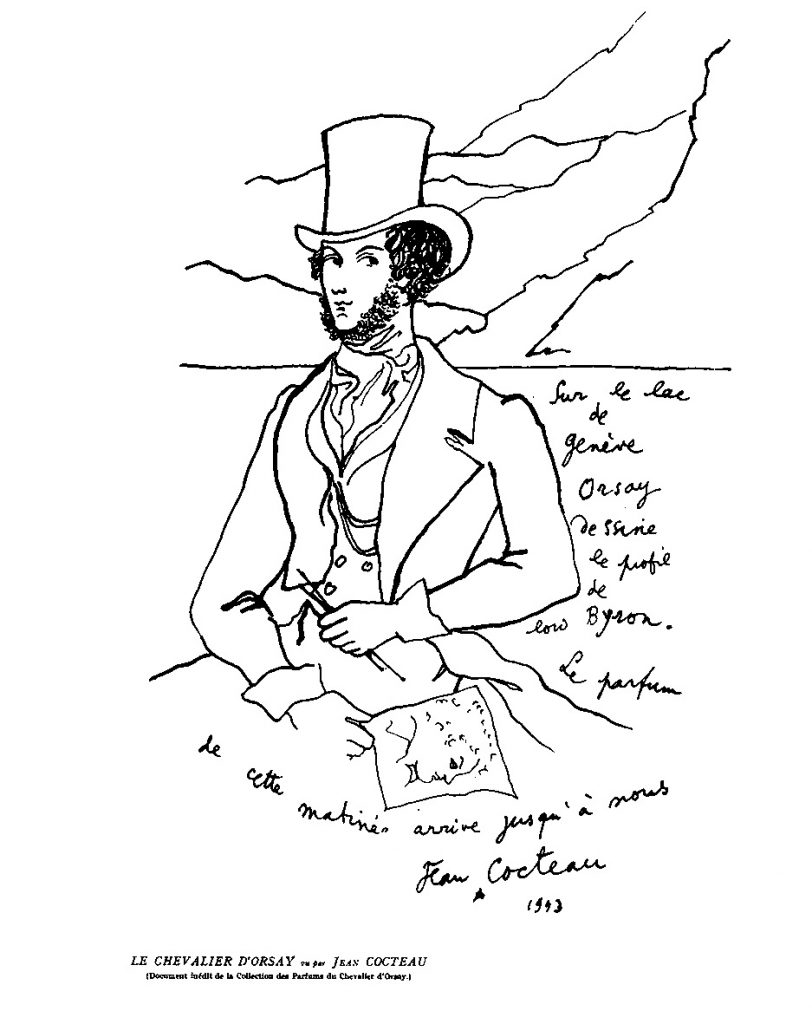 Sur le lac
de
genève
Orsay
dessine
le profil
de
lord Byron.
Le parfum
de cette matinée arrive jusqu'à nous
Jean Cocteau
1943
LE CHEVALIER D'ORSAY vu par JEAN COCTEAU
(Document inédit de la Collection des Parfums du Chevalier d'Orsay.)